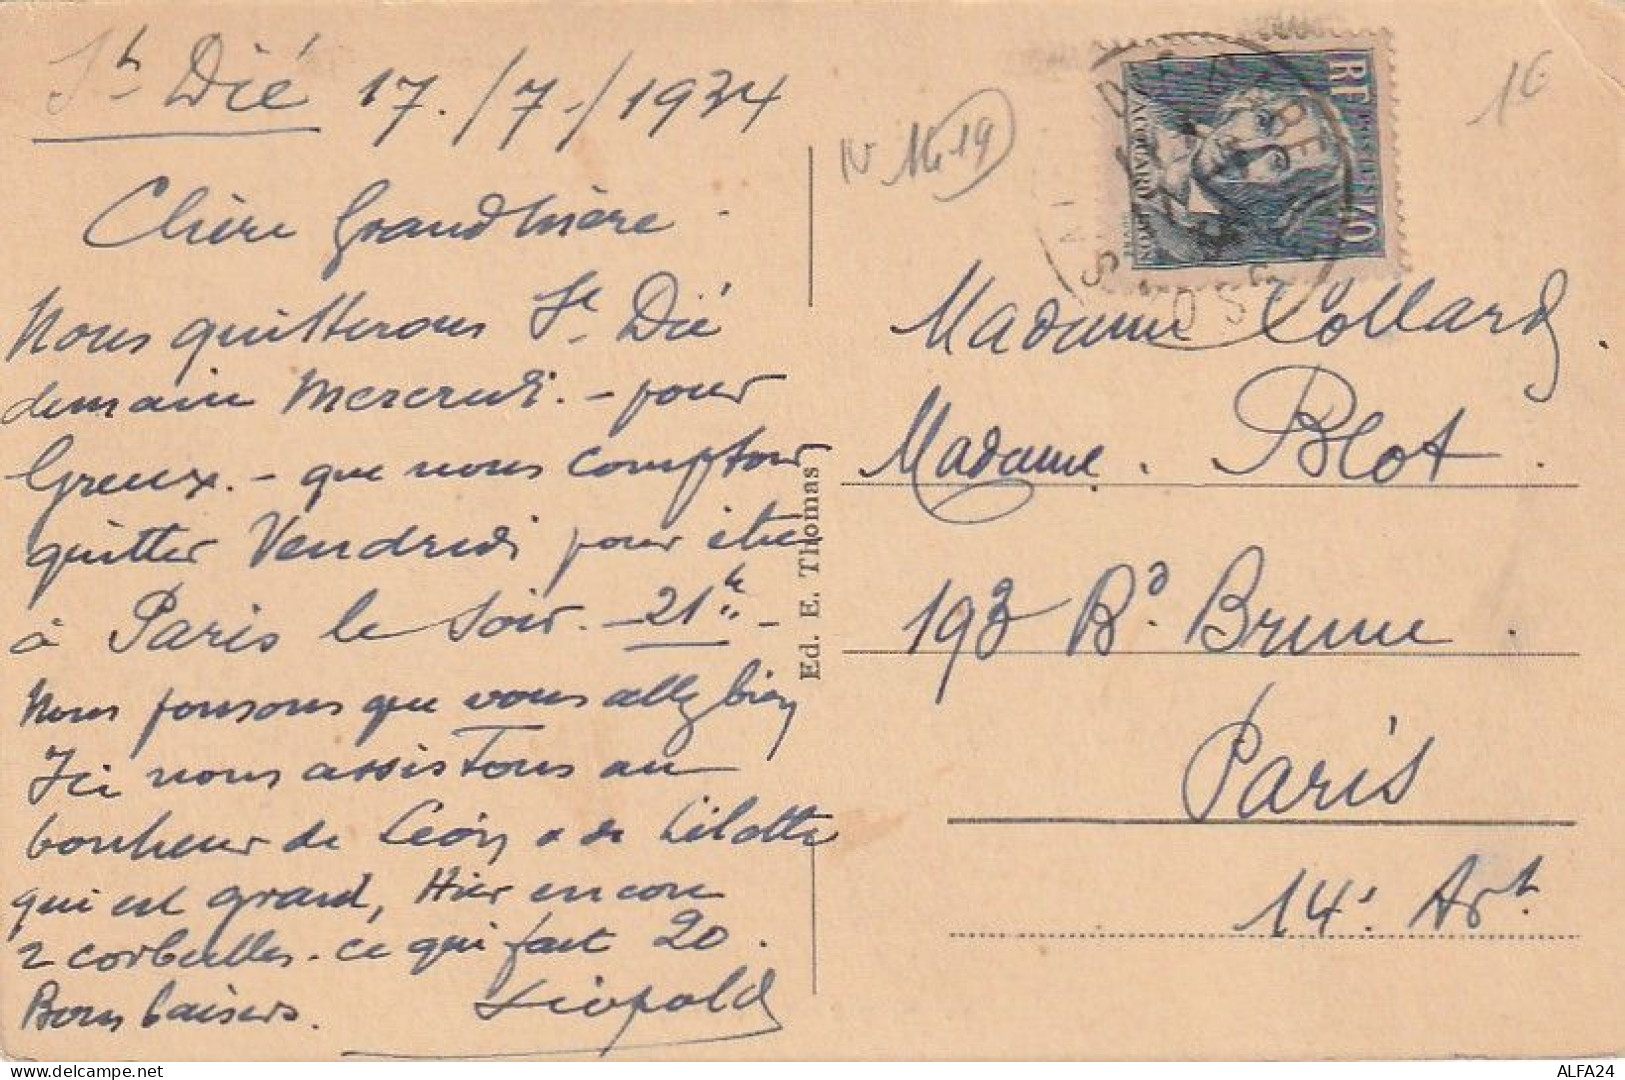 St Dié 17./7./1934
Chère Grand'Mère
Nous quitterons St Dié
demain Mercredi. - pour
Greux. - que nous comptons
quitter Vendredi pour être
à Paris le soir. - 21h -
Nous pensons que vous allez bien
Ici nous assistons au
bonheur de Léon & de Lilotte
qui est grand, Hier encore
2 corbeilles. ce qui fait 20.
Bons baisers. Léopold
Ed. E. Thomas
1€
RF
POSTES
40
JACQUARD LYON
Madame Collard.
Madame. Blot.
193 Bd. Brune.
Paris
14. Art.
delcampe.net
ALFA24